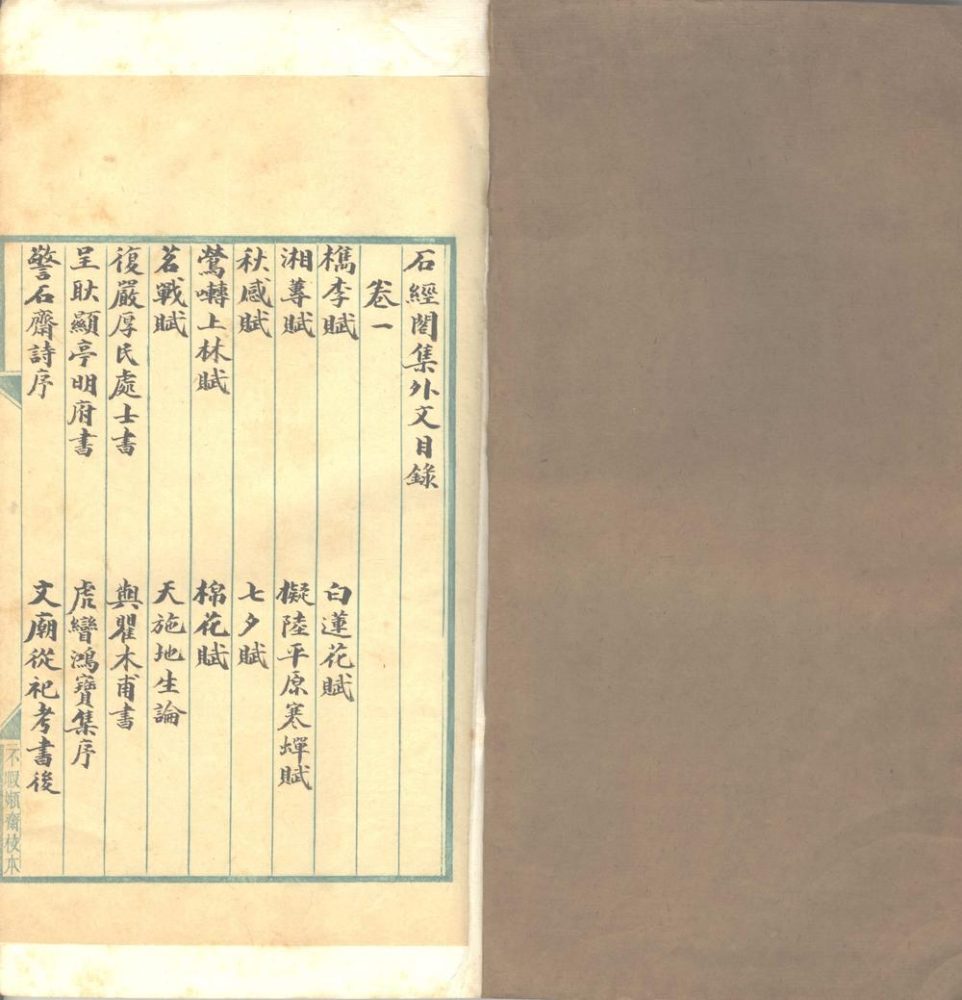 石經閣集外文目錄
卷一
檇李賦　白蓮花賦
湘蓴賦　擬陸平原寒蟬賦
秋感賦　七夕賦
鶯囀上林賦　棉花賦
茗戰賦　天施地生論
復嚴厚民處士書　與瞿木甫書
呈耿顯亭明府書　虎鐕鴻寶集序
警石齋詩序　文廟從祀考書後
不暇嬾齋校本